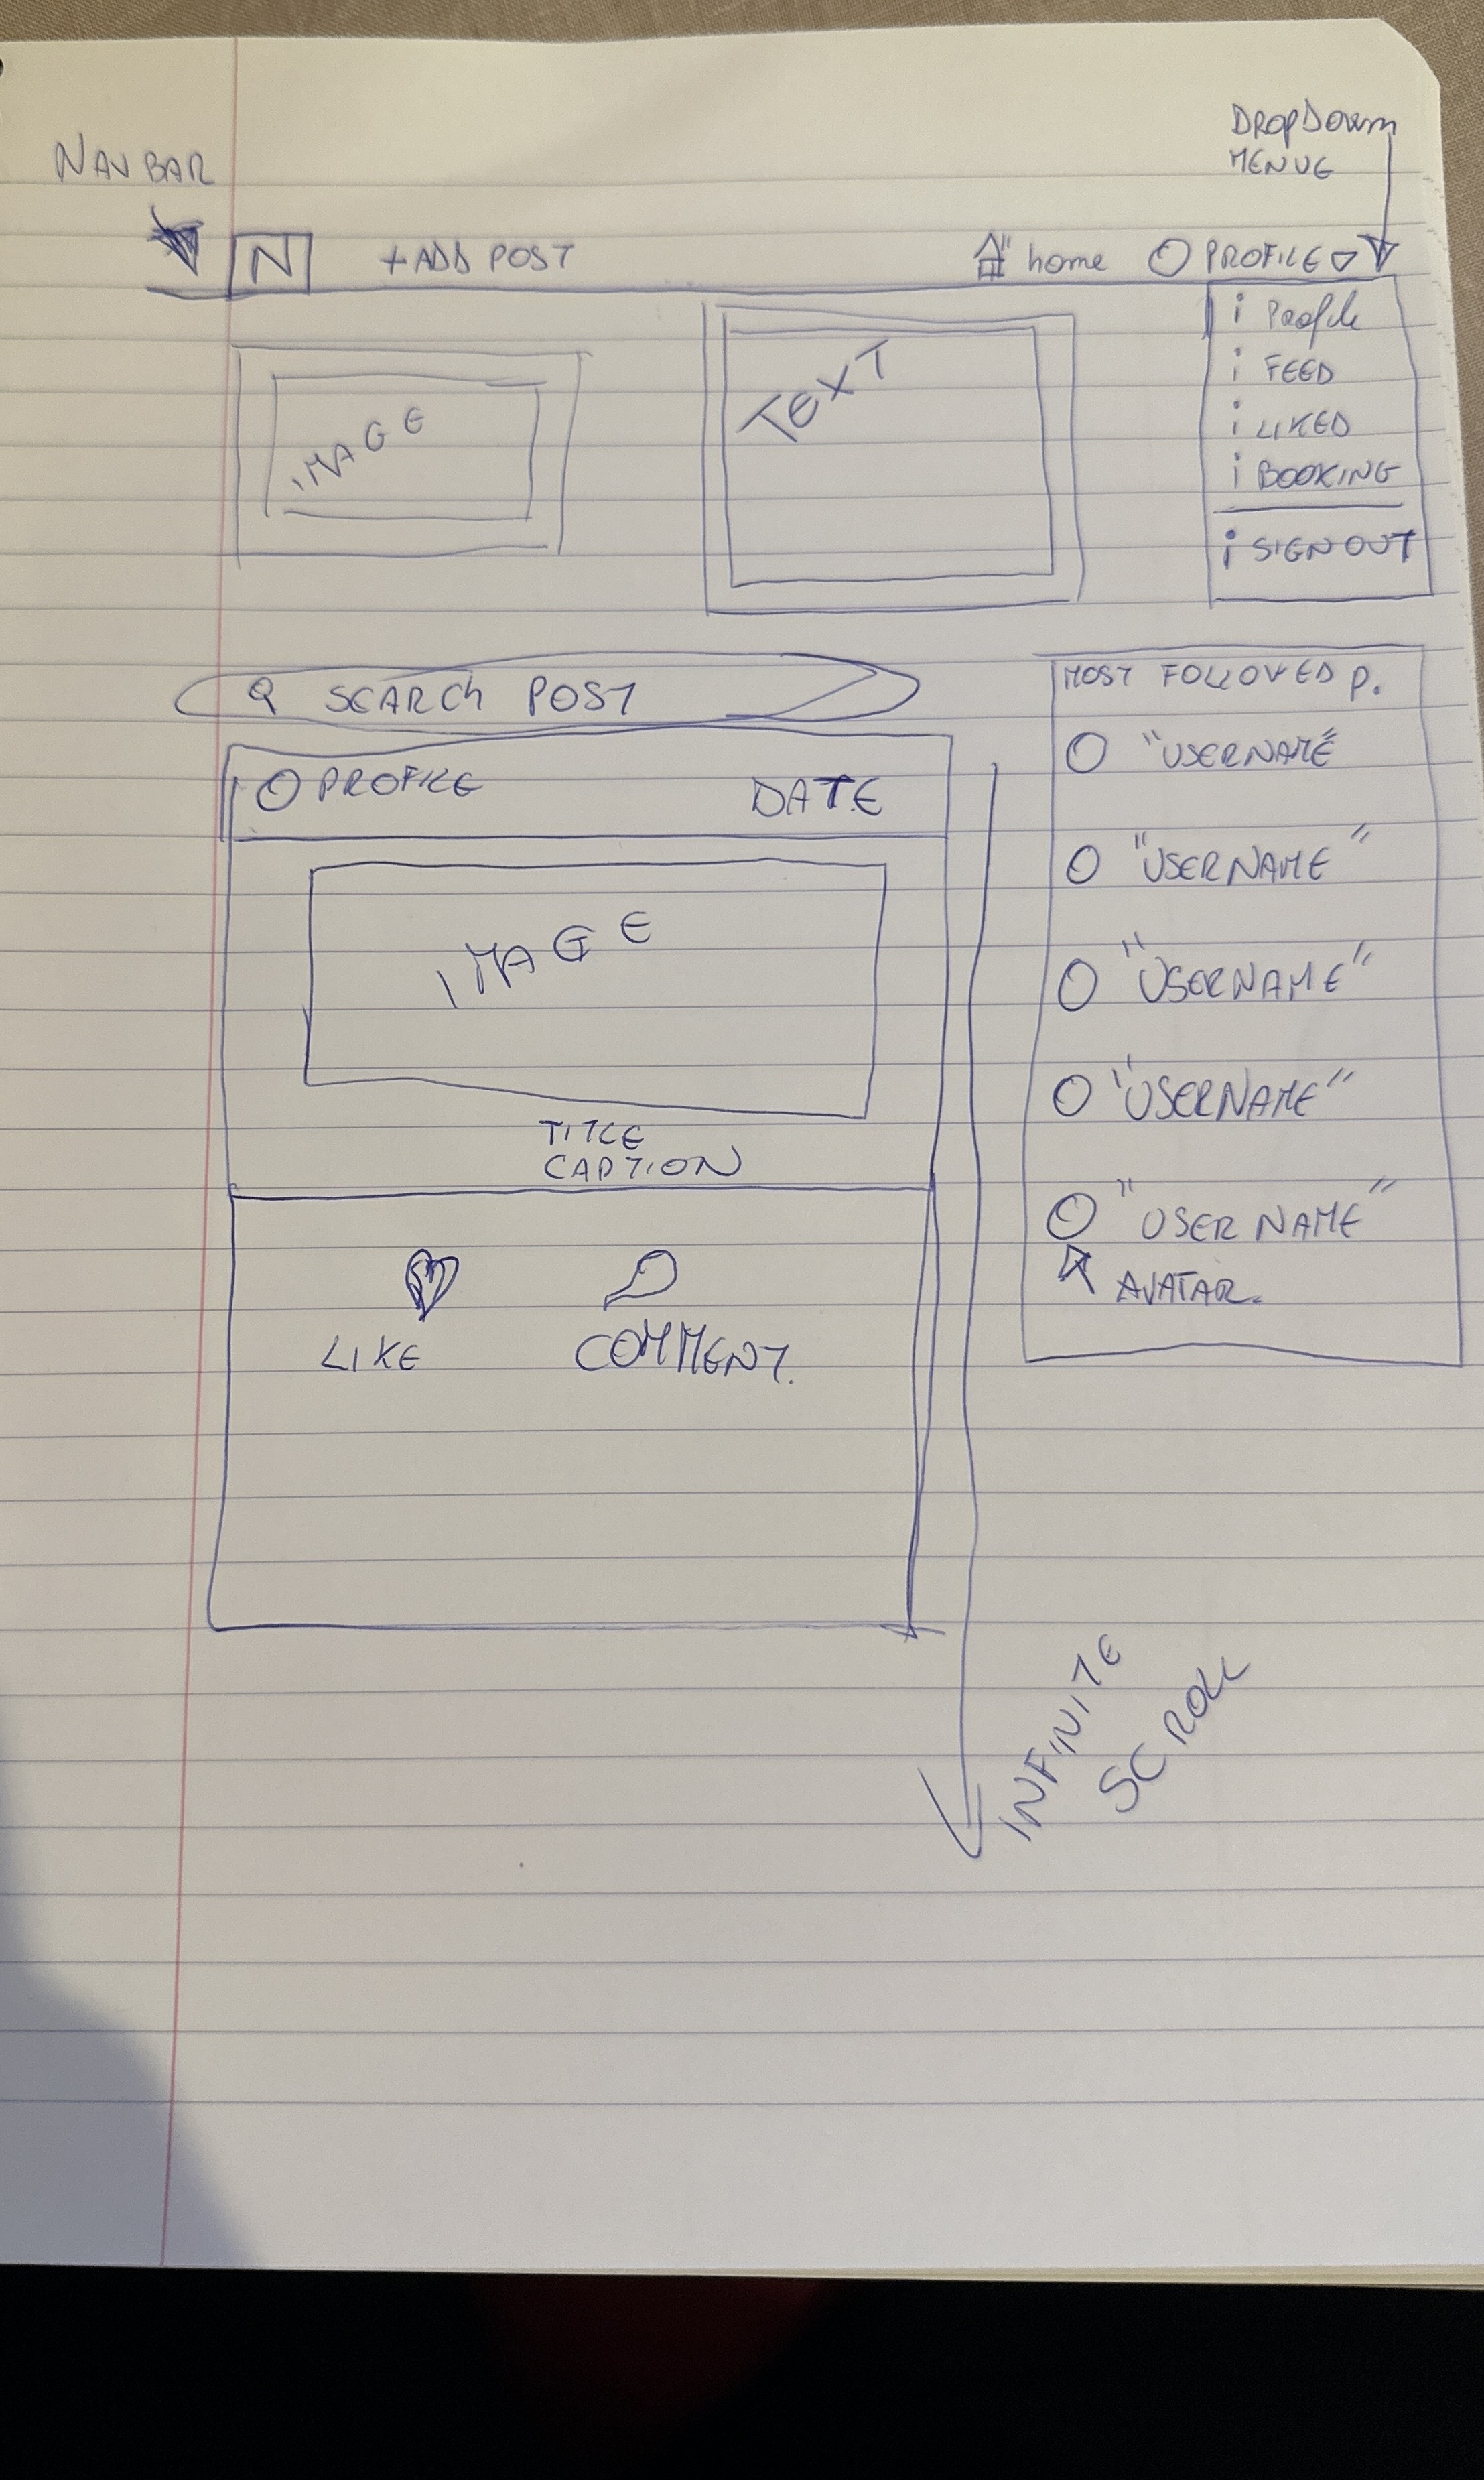 NAVBAR
DROPDOWN
MENUE
N + ADD POST home PROFILE
i Profile
i FEED
i LIKED
i BOOKING
i SIGN OUT
IMAGE
TEXT
SEARCH POST
PROFILE DATE
IMAGE
TITLE
CAPTION
LIKE COMMENT.
MOST FOLLOWED P.
"USERNAME"
"USERNAME"
"USERNAME"
"USERNAME"
"USERNAME"
AVATAR.
INFINITE
SCROLL